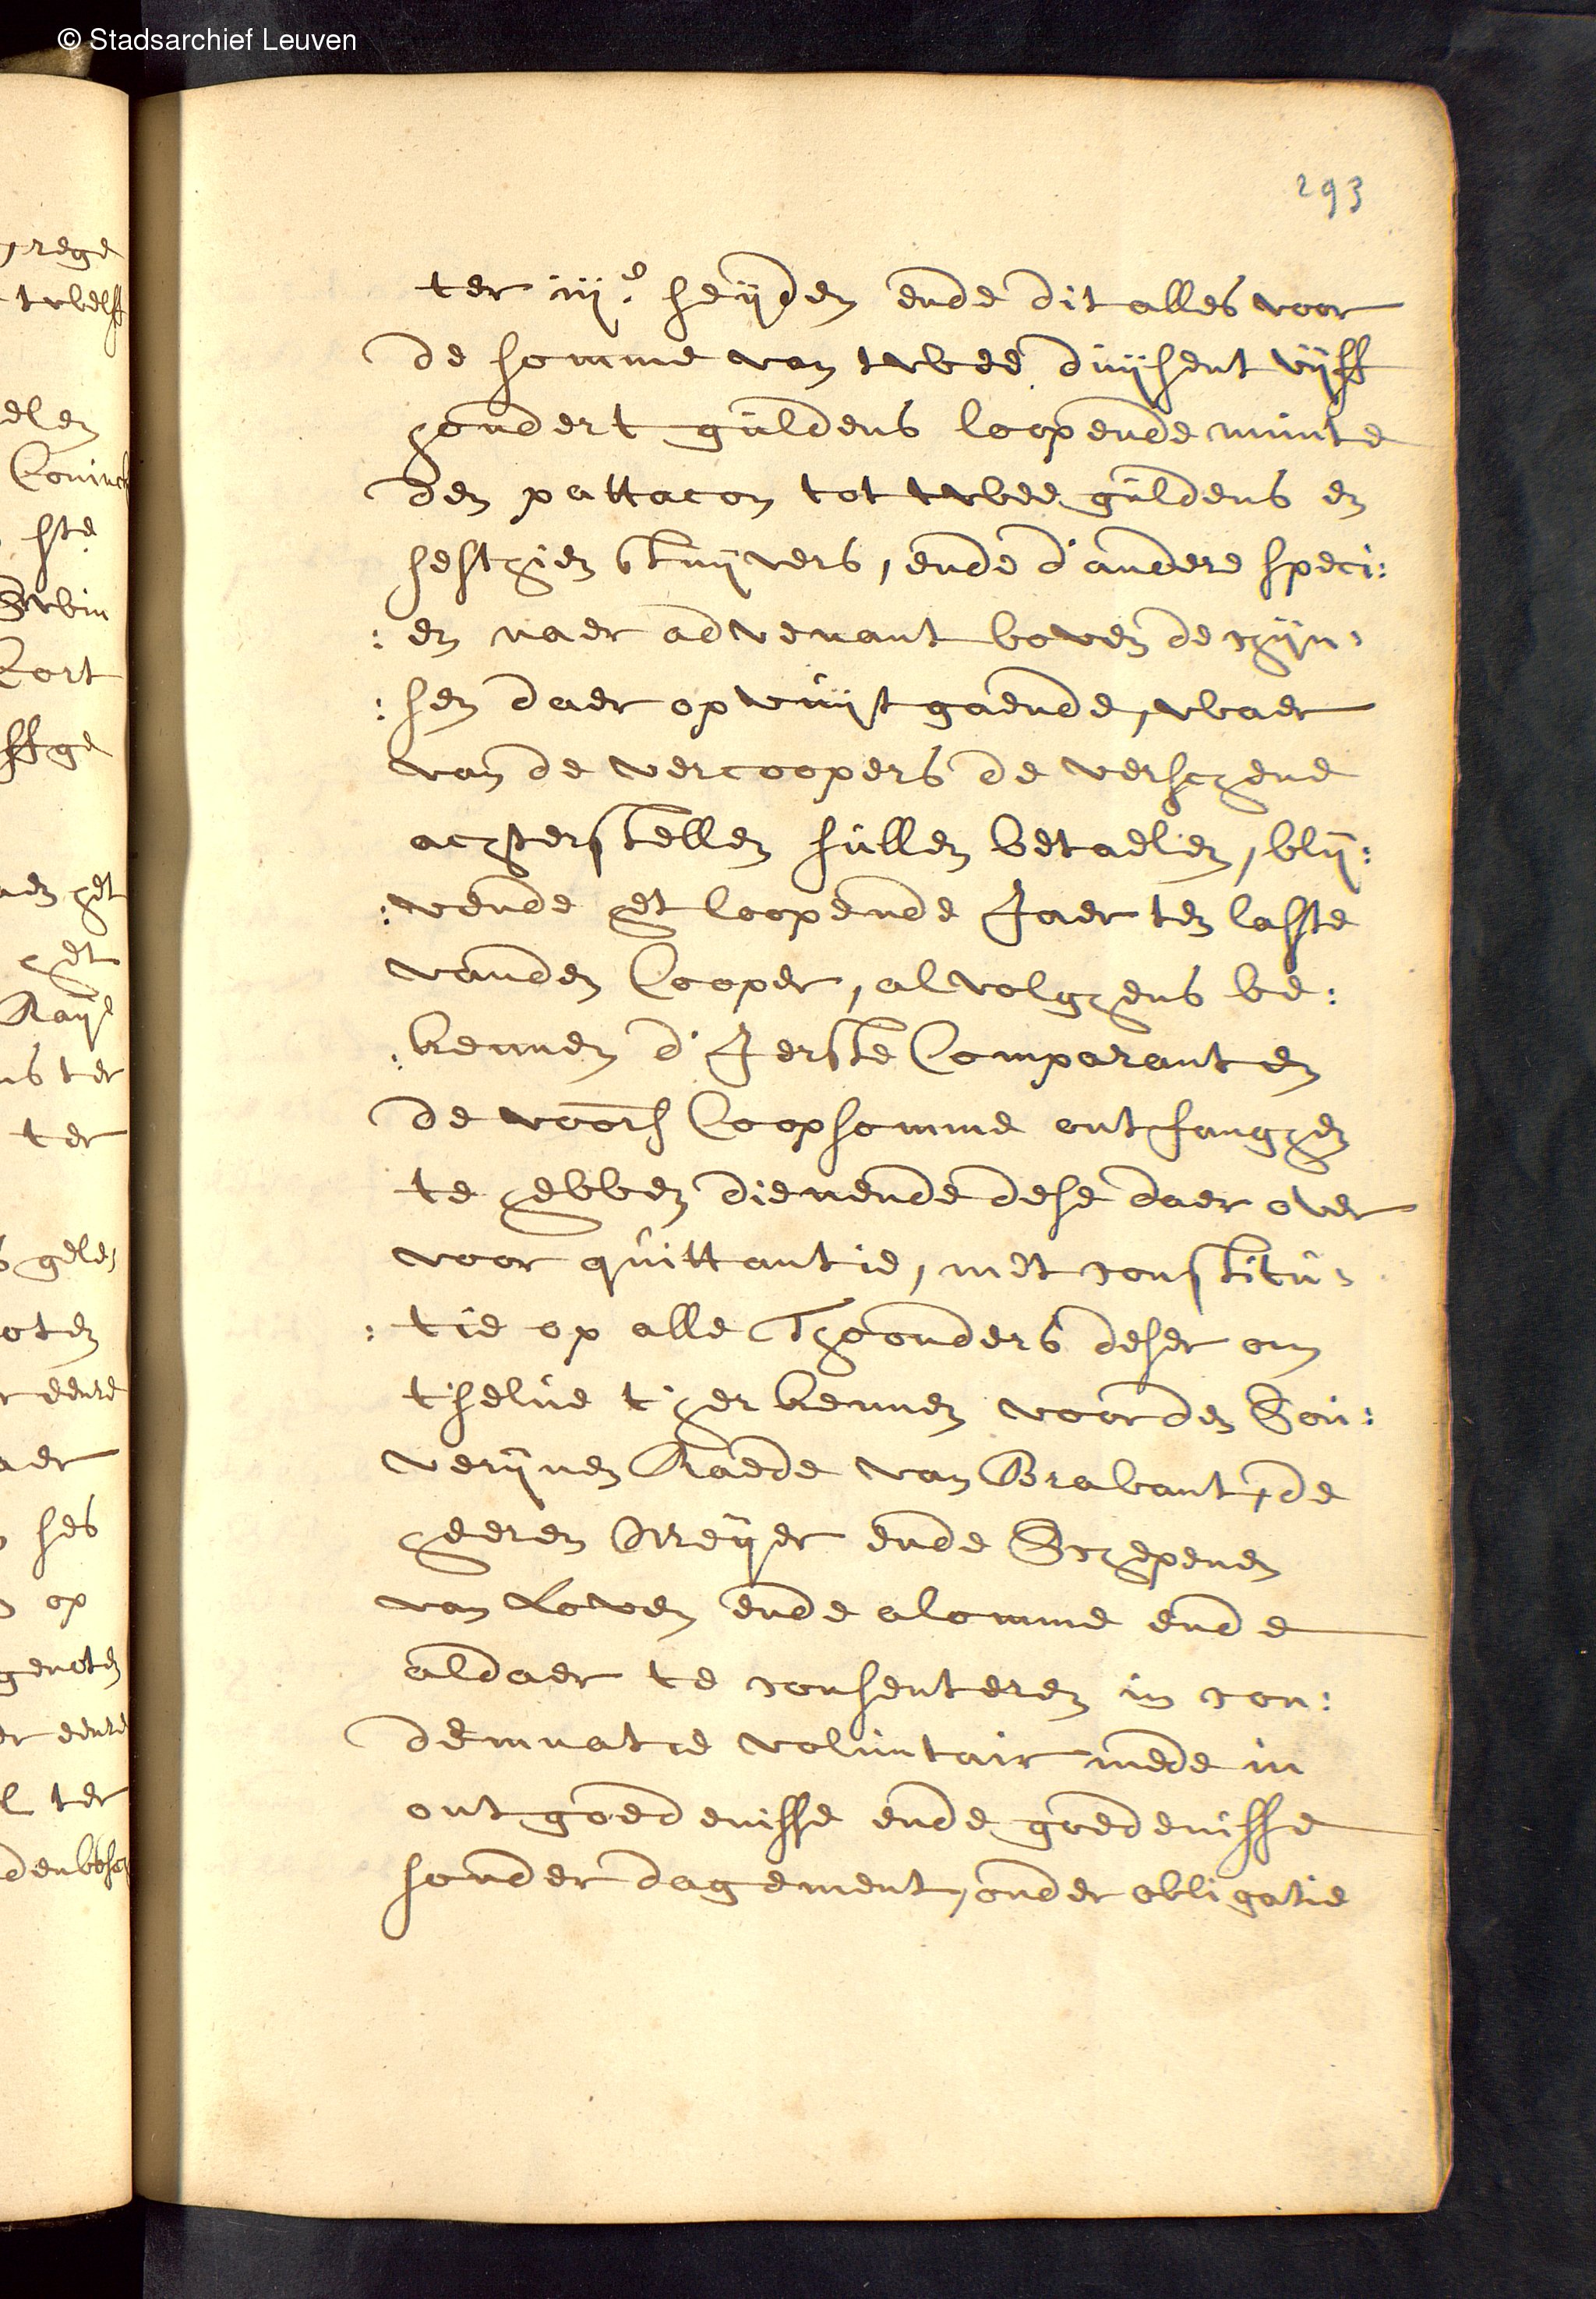 © Stadsarchief Leuven
293
ter iij.e seijden ende dit alles voor
de somme van twee duijsent vijff
hondert guldens loopende munte
den pattacon tot twee guldens en
sesthien stuijvers, ende d'andere speci:
:en naer advenant boven de chijn:
:sen daer op vuijtgaende, waer
van de vercoopers de verschene
achterstellen sullen betaelen, blij:
:vende het loopende Jaer ten laste
vanden Cooper, al volghens be:
:kennen d'Jerste Comparanten
de voors Coopsomme ontfanghen
te hebben dienende dese daer over
voor quittantie, met constitu:
:tie op alle Thoonders deser om
t'selve t'herkennen voor den Sou:
verijnen Raede van Brabant, de
heeren Meijer ende Schepenen
van Loven ende alomme ende
aldaer te consenteren in con:
demnatie voluntair mede in
ontgoedenisse ende goedenisse
sonder dagement, onder obligatie
rege
twelff
elen
Coninck
ste
kort
ffge
het
het
ter
ter
gele
oten
eenre
aer
ses
op
genoten
eenre
ter